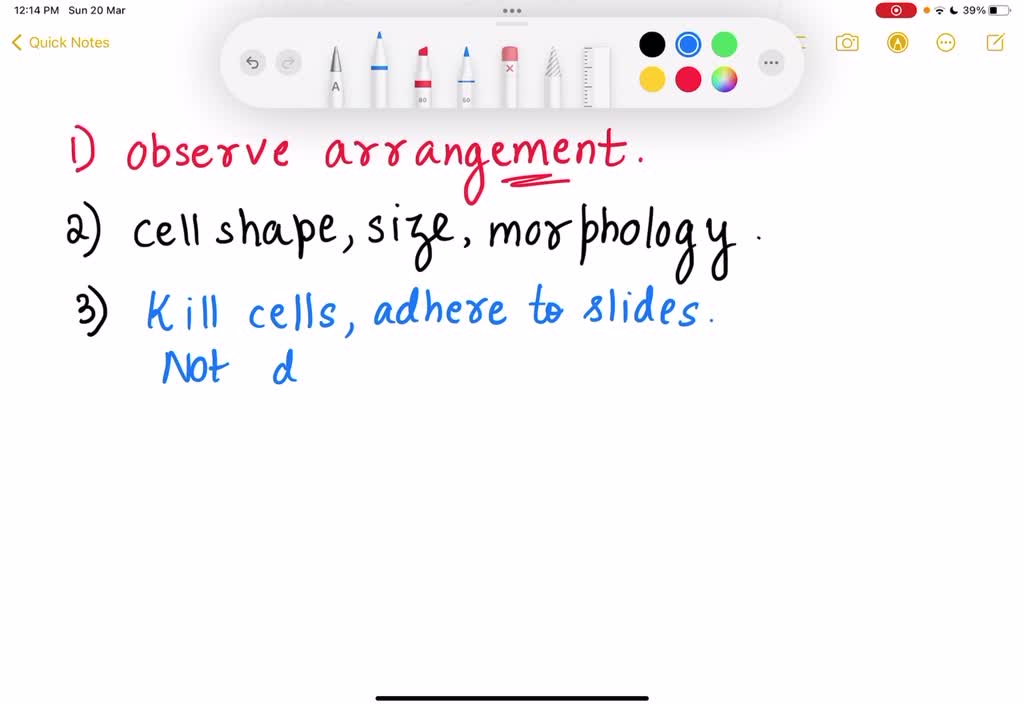 12:14 PM Sun 20 Mar
39%
Quick Notes
A
80
50
1) observe arrangement.
2) cell shape, size, morphology.
3) Kill cells, adhere to slides.
Not d